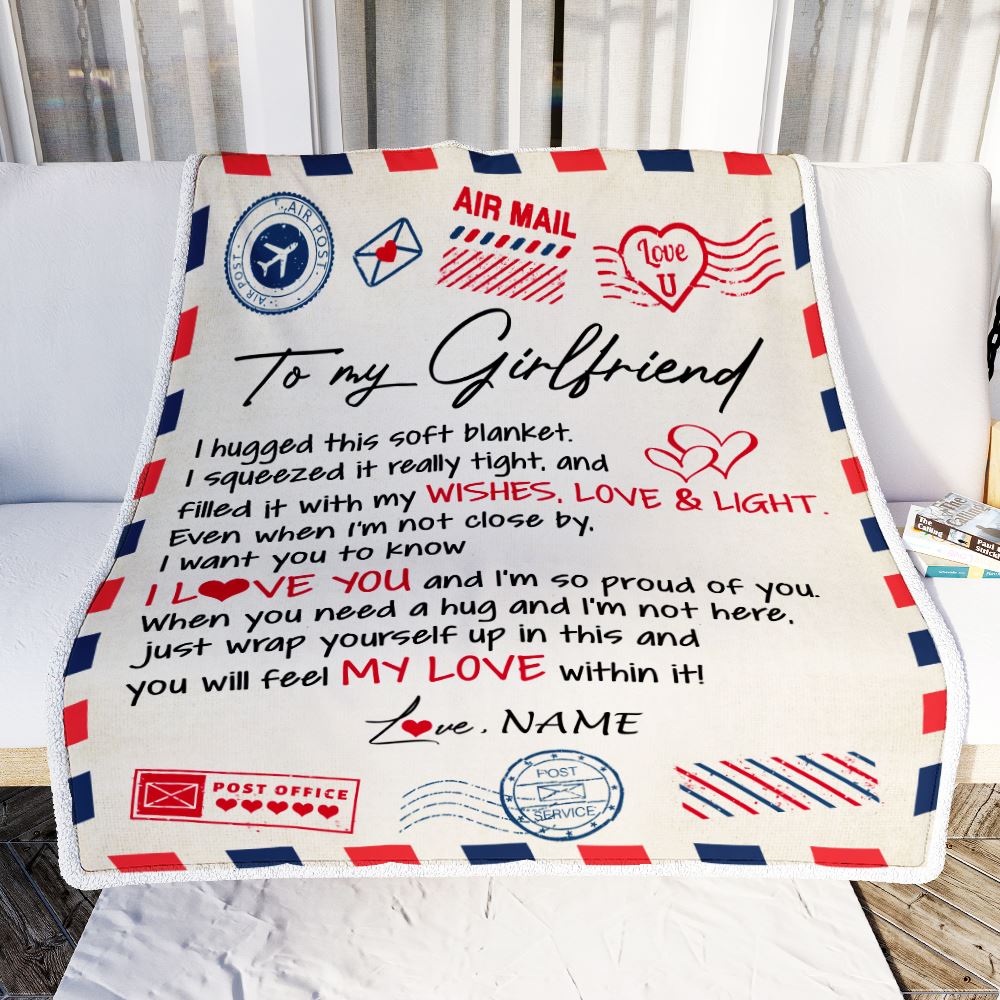 AIR POST
AIR POST
AIR MAIL
Love
U
To my Girlfriend
I hugged this soft blanket.
I squeezed it really tight, and
filled it with my WISHES, LOVE & LIGHT.
Even when I'm not close by,
I want you to know
I L❤VE YOU and I'm so proud of you.
When you need a hug and I'm not here,
just wrap yourself up in this and
you will feel MY LOVE within it!
L❤ve, NAME
POST OFFICE
POST
SERVICE
The
Calling
Paul